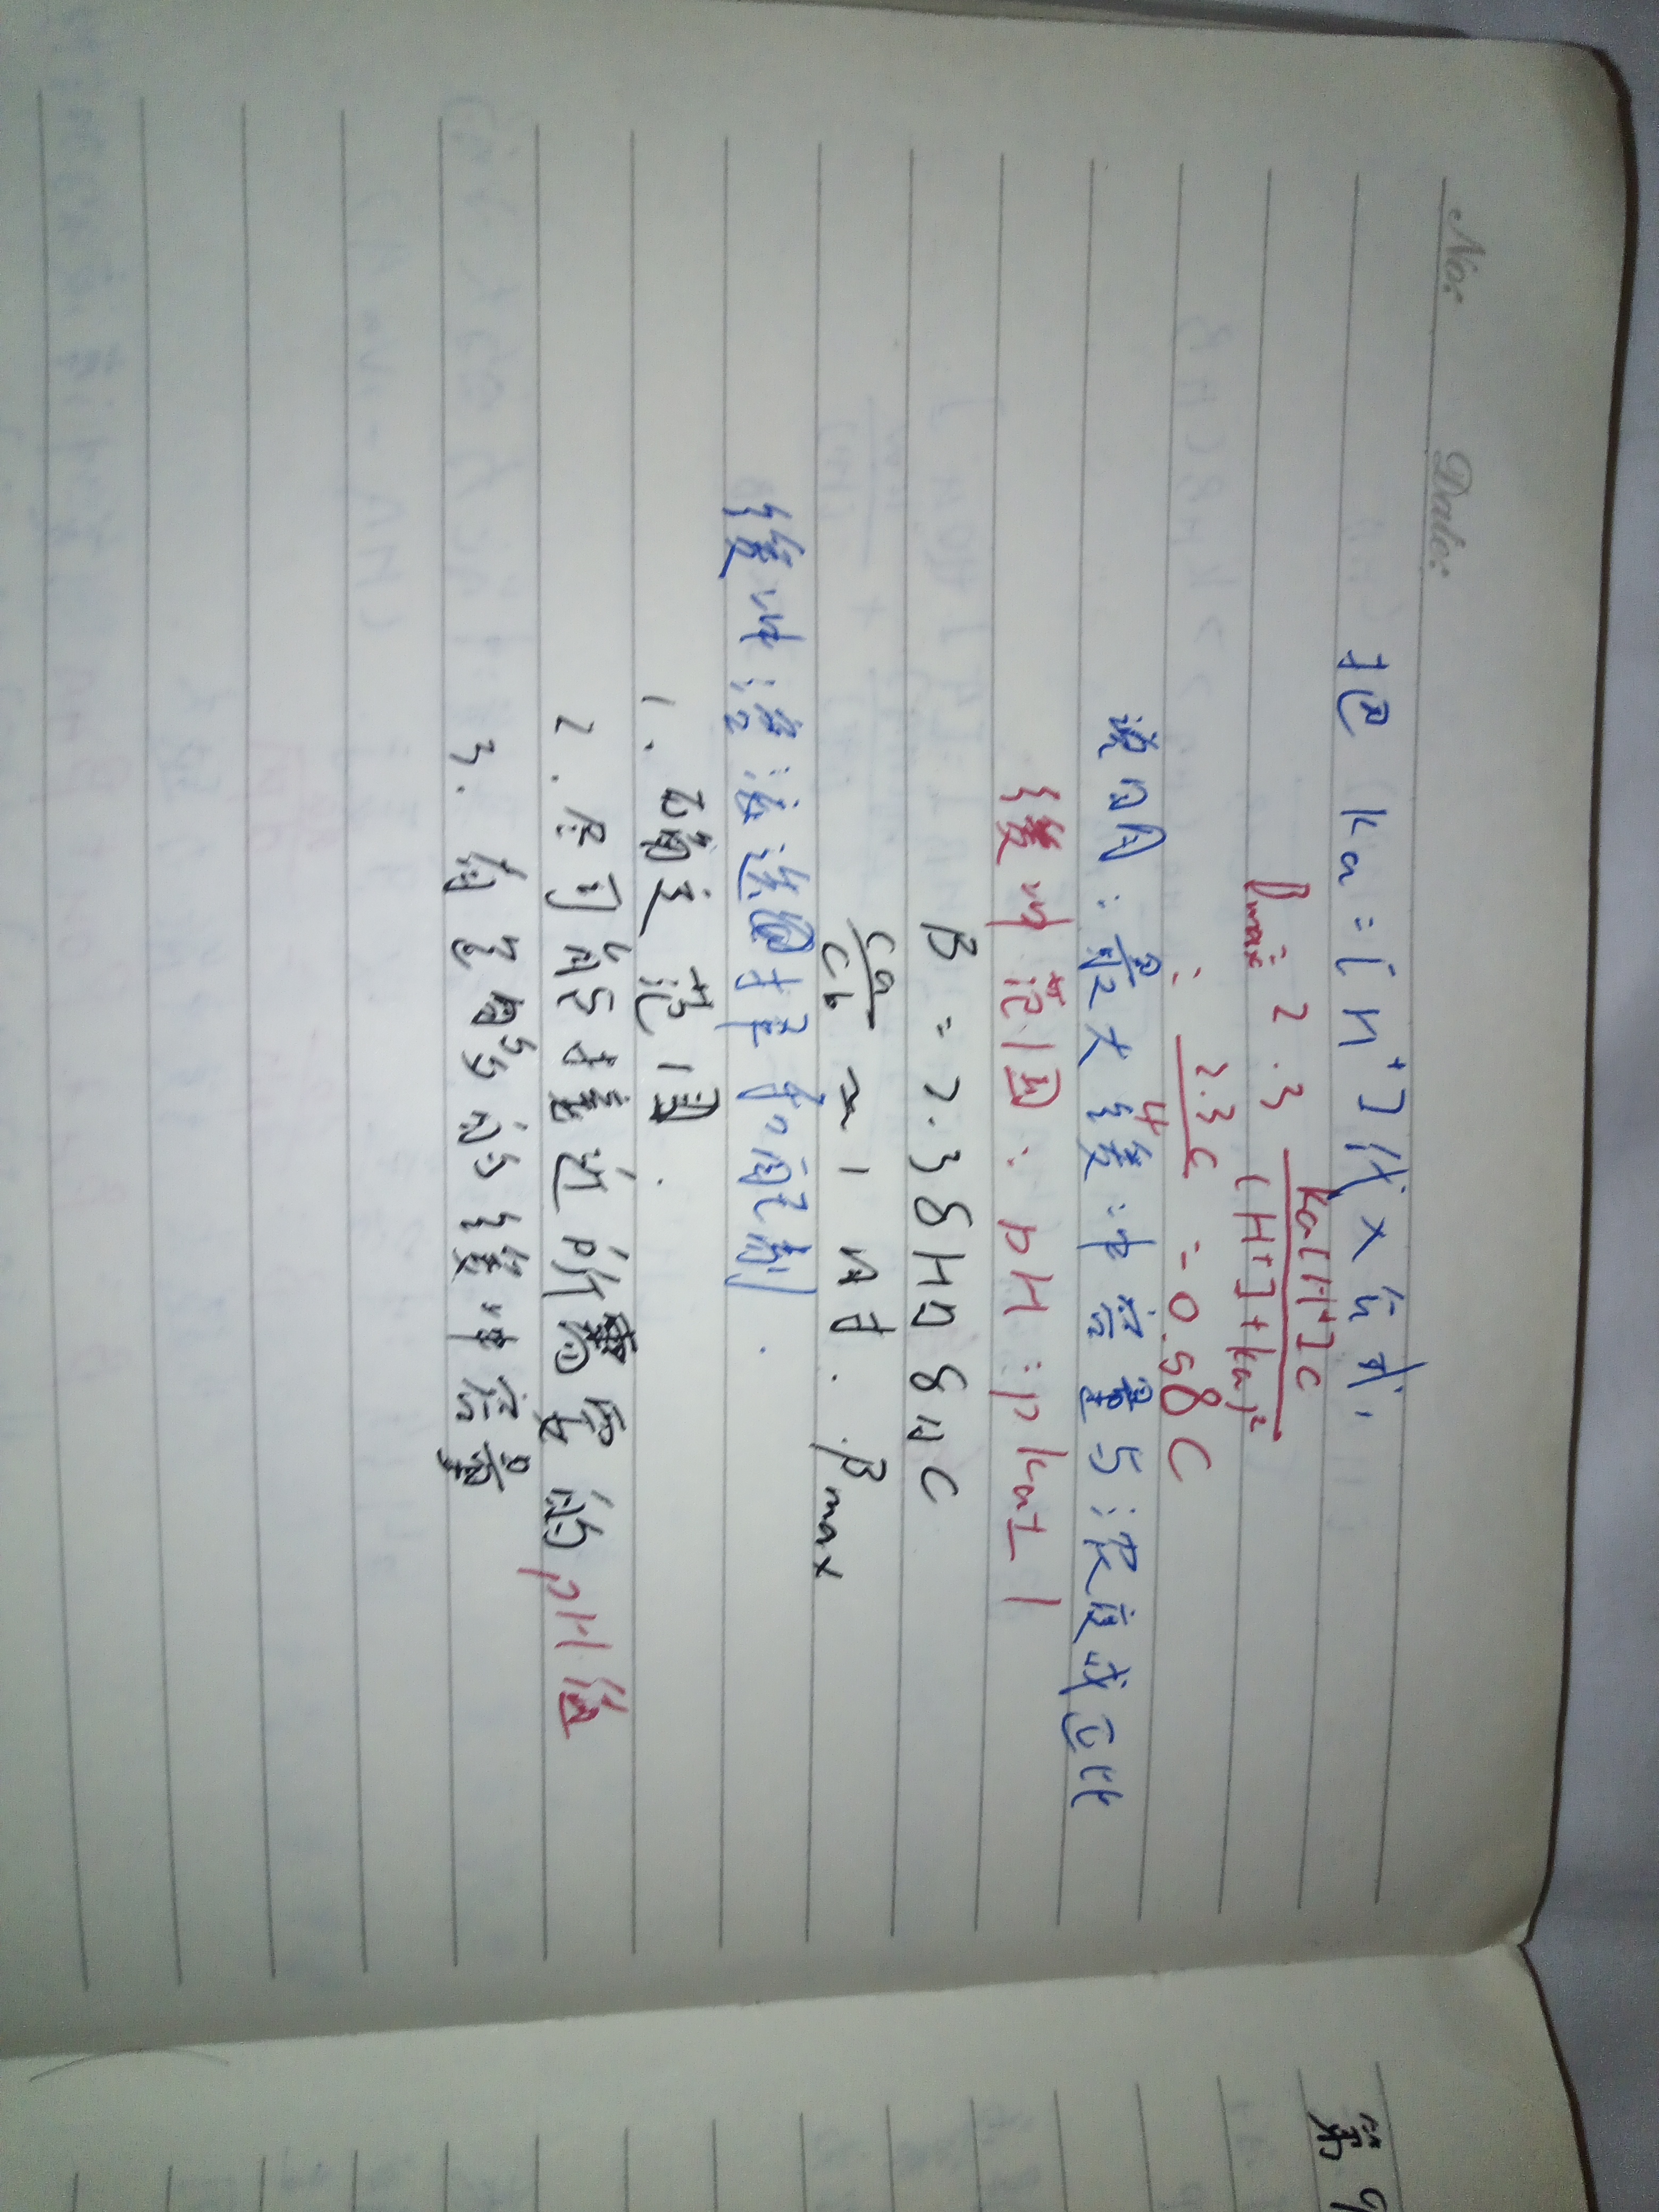 No:
Date:
把 Ka=[H⁺]代入右式,
βmax = 2.3 Ka[H⁺]C / ([H⁺]+Ka)²
= 2.3C / 4 = 0.58C
说明:最大缓冲容量与浓度成正比
缓冲范围: pH = pKa±1
β = 2.3δHAδAC
Ca/Cb ≈ 1 时. βmax
缓冲溶液选择和配制.
1. 确定范围.
2. 尽可能接近所需要的pH值
3. 有足够的缓冲容量
第9